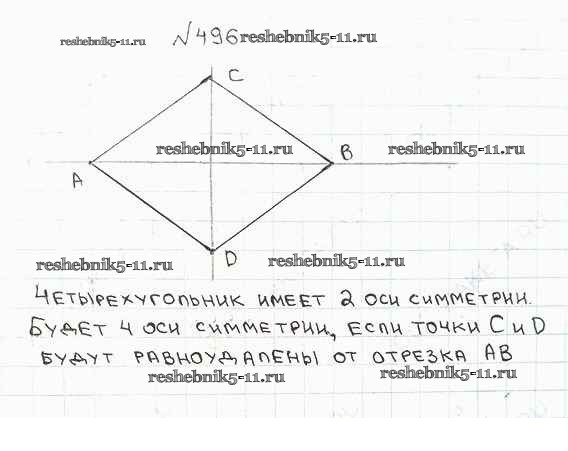 reshebnik5-11.ru №496 reshebnik5-11.ru
C
reshebnik5-11.ru reshebnik5-11.ru
A B
D
reshebnik5-11.ru reshebnik5-11.ru
Четырехугольник имеет 2 оси симметрии.
Будет 4 оси симметрии, если точки C и D
будут равноудалены от отрезка AB
reshebnik5-11.ru reshebnik5-11.ru